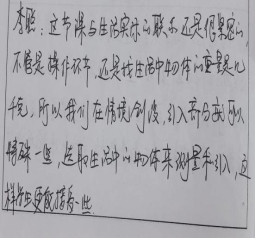 李照：这节课与生活实际的联系还是很紧密的，
不管是操作环节，还是找生活中物体的重量是几
千克，所以我们在情境创设，引入部分就可以
精确一些，选取生活中的物体来测量和引入，这
样学生更敢猜一些